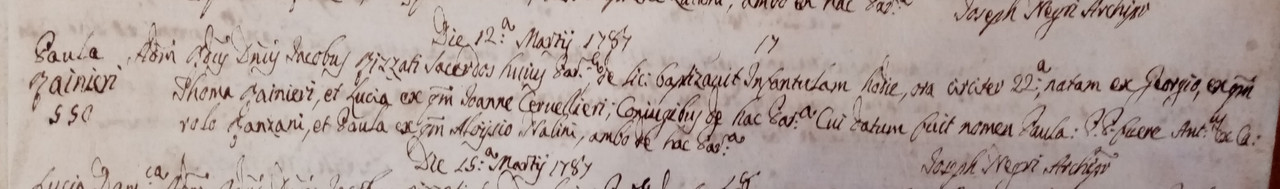 ambo ex hac Par.a Joseph Negri Archipr
Die 12.a Martij 1787
17
Paula Rainieri 550
Adm Rdus Dnus Jacobus Rizzati Sacerdos hujus Par.lis de lic: baptizavit Infantulam hodie, ora circiter 22.a, natam ex Georgio, ex qm
Thoma Rainieri, et Lucia ex qm Joanne Cervellieri; Conjugibus de hac Par.a Cui datum fuit nomen Paula: P. P. fuere Ant.us ex Ca:
rolo Ganzani, et Paula ex qm Aloysio Nalini, ambo de hac Par.a
Die 15.a Martij 1787 Joseph Negri Archipr
Lucia